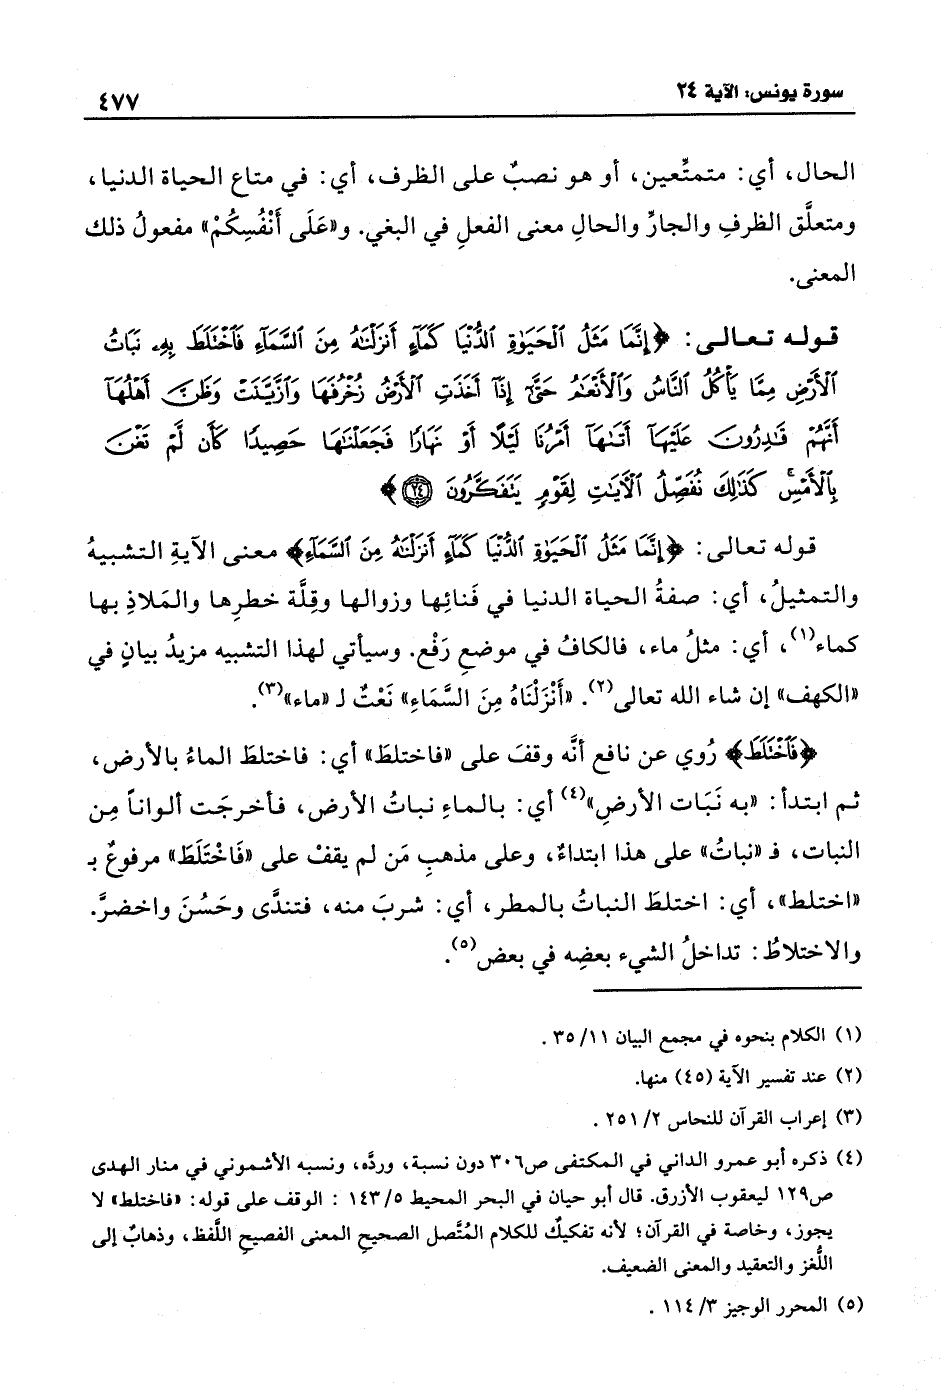 سورة يونس: الآية ٢٤
٤٧٧
الحال، أي: متمتِّعين، أو هو نصبٌ على الظرف، أي: في متاع الحياة الدنيا،
ومتعلَّق الظرفِ والجارِّ والحالِ معنى الفعلِ في البغي. و«عَلَى أَنْفُسِكُمْ» مفعولُ ذلك
المعنى.
قوله تعالى: ﴿إِنَّمَا مَثَلُ ٱلْحَيَوٰةِ ٱلدُّنْيَا كَمَآءٍ أَنزَلْنَـٰهُ مِنَ ٱلسَّمَآءِ فَٱخْتَلَطَ بِهِۦ نَبَاتُ
ٱلْأَرْضِ مِمَّا يَأْكُلُ ٱلنَّاسُ وَٱلْأَنْعَـٰمُ حَتَّىٰٓ إِذَآ أَخَذَتِ ٱلْأَرْضُ زُخْرُفَهَا وَٱزَّيَّنَتْ وَظَنَّ أَهْلُهَآ
أَنَّهُمْ قَـٰدِرُونَ عَلَيْهَآ أَتَىٰهَآ أَمْرُنَا لَيْلًا أَوْ نَهَارًا فَجَعَلْنَـٰهَا حَصِيدًا كَأَن لَّمْ تَغْنَ
بِٱلْأَمْسِ ۚ كَذَٰلِكَ نُفَصِّلُ ٱلْـَٔايَـٰتِ لِقَوْمٍ يَتَفَكَّرُونَ ۝٢٤﴾
قوله تعالى: ﴿إِنَّمَا مَثَلُ ٱلْحَيَوٰةِ ٱلدُّنْيَا كَمَآءٍ أَنزَلْنَـٰهُ مِنَ ٱلسَّمَآءِ﴾ معنى الآيةِ التشبيهُ
والتمثيلُ، أي: صفةُ الحياة الدنيا في فَنائِها وزوالها وقِلَّة خطرِها والمَلاذِ بها
كماء(١)، أي: مثلُ ماء، فالكافُ في موضعِ رَفْع. وسيأتي لهذا التشبيه مزيدُ بيانٍ في
«الكهف» إن شاء الله تعالى(٢). «أَنْزَلْنَاهُ مِنَ السَّمَاءِ» نَعْتٌ لـ «ماء»(٣).
﴿فَٱخْتَلَطَ﴾ رُوي عن نافع أنَّه وقفَ على «فاختلط» أي: فاختلطَ الماءُ بالأرض،
ثم ابتدأ: «به نَبَات الأرضِ»(٤) أي: بالماءِ نباتُ الأرض، فأخرجَت ألواناً مِن
النبات، فـ «نباتُ» على هذا ابتداءٌ، وعلى مذهبِ مَن لم يقفْ على «فَاخْتَلَطَ» مرفوعٌ بـ
«اختلط»، أي: اختلطَ النباتُ بالمطر، أي: شربَ منه، فتندَّى وحَسُنَ واخضرَّ.
والاختلاطُ: تداخلُ الشيء بعضِه في بعض(٥).
(١) الكلام بنحوه في مجمع البيان ١١/ ٣٥ .
(٢) عند تفسير الآية (٤٥) منها.
(٣) إعراب القرآن للنحاس ٢/ ٢٥١ .
(٤) ذكره أبو عمرو الداني في المكتفى ص٣٠٦ دون نسبة، وردَّه، ونسبه الأشموني في منار الهدى
ص١٢٩ ليعقوب الأزرق. قال أبو حيان في البحر المحيط ٥/ ١٤٣ : الوقف على قوله: «فاختلط» لا
يجوز، وخاصة في القرآن؛ لأنه تفكيكٌ للكلام المُتَّصل الصحيحِ المعنى الفصيحِ اللَّفظ، وذهابٌ إلى
اللُّغز والتعقيد والمعنى الضعيف.
(٥) المحرر الوجيز ٣/ ١١٤ .